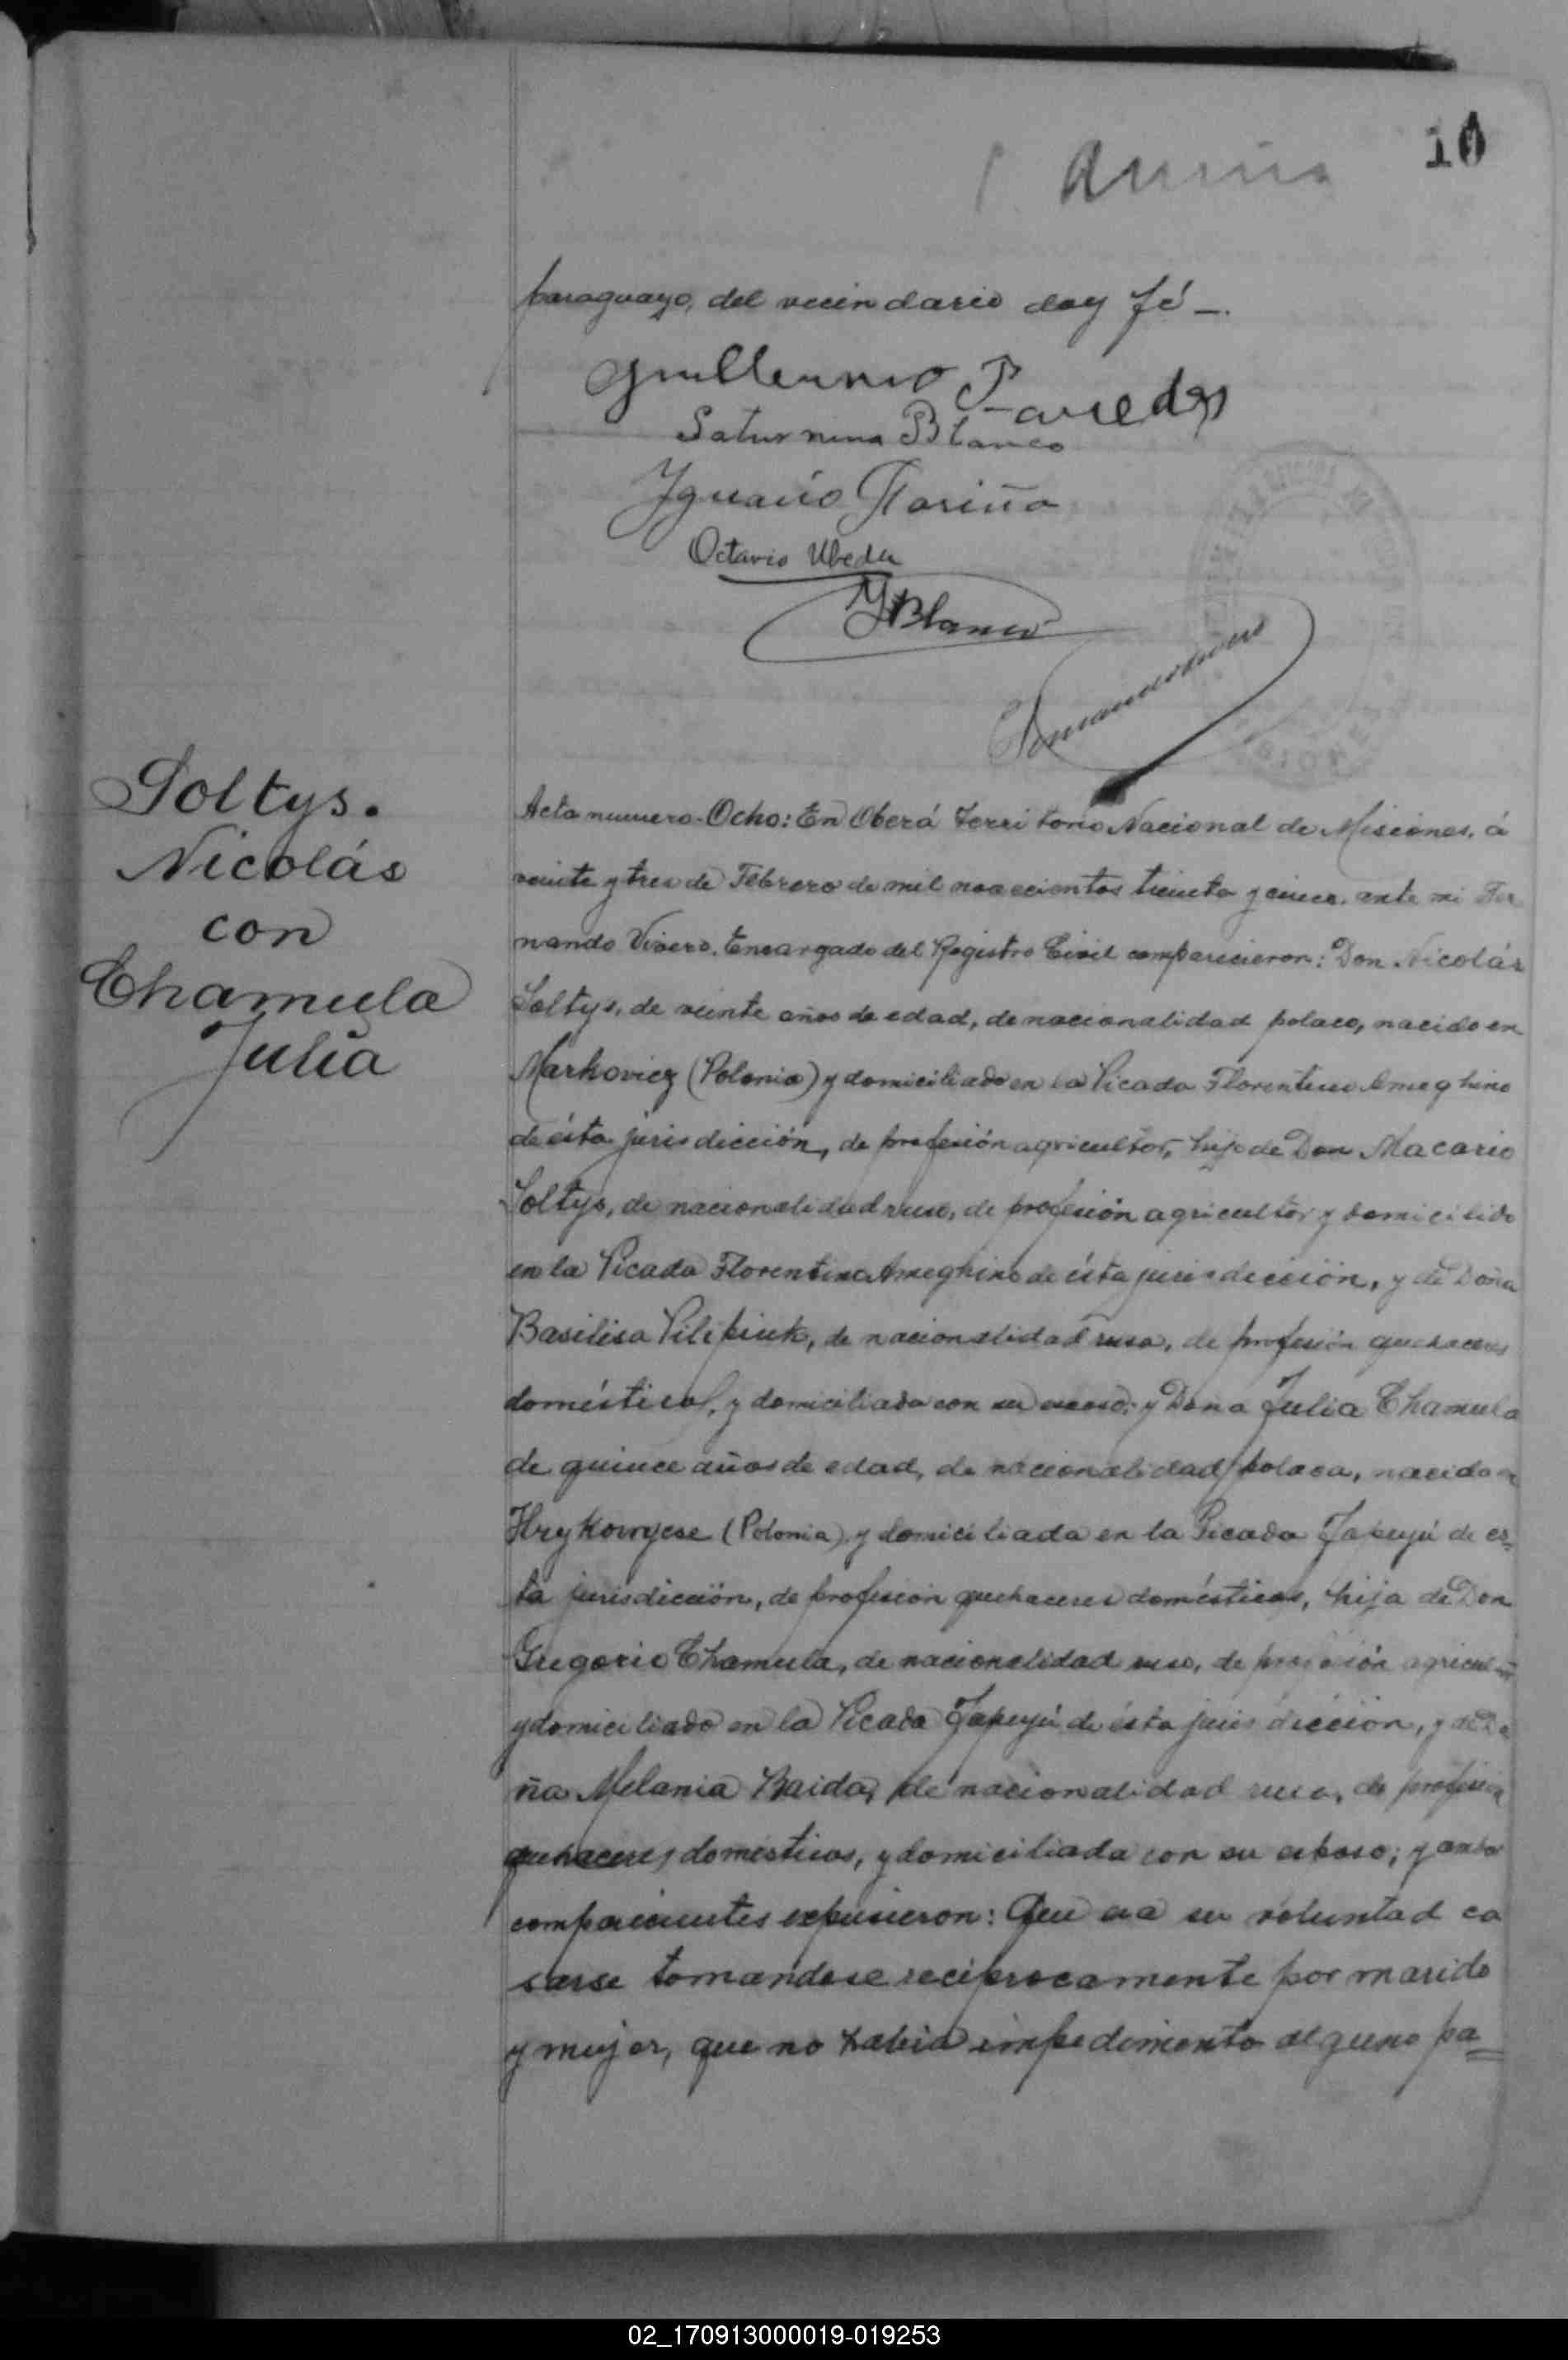 10
paraguayo, del vecindario doy fé –.
Guillermo Paredes
Saturnina Blanco
Ygnacio Fariña
Octavio Ubeda
YBlanco
Soltys.
Nicolás
con
Chamula
Julia
Acta numero-Ocho: En Oberá Territorio Nacional de Misiones, á
veinte y tres de Febrero de mil novecientos treinta y cinco, ante mi Fer
nando Vivero, Encargado del Registro Civil comparecieron: Don Nicolás
Soltys, de veinte años de edad, de nacionalidad polaco, nacido en
Markovicz (Polonia) y domiciliado en la Picada Florentino Ameghino
de ésta jurisdicción, de profesión agricultor, hijo de Don Macario
Soltys, de nacionalidad ruso, de profesión agricultor y domicilido
en la Picada Florentino Ameghino de ésta jurisdicción, y de Doña
Basilisa Pilipiuk, de nacionalidad rusa, de profesión quehaceres
domésticos, y domiciliada con su esposo; y Dona Julia Chamula
de quince años de edad, de nacionalidad polaca, nacida en
Hrykowycse (Polonia) y domiciliada en la Picada Yapeyú de es=
ta jurisdicción, de profesion quehaceres domésticos, hija de Don
Gregorio Chamula, de nacionalidad ruso, de profesión agricultor
y domiciliado en la Picada Yapeyú de ésta jurisdicción, y de Do
ña Melania Baida, de nacionalidad rusa, de profesión
quehaceres domésticos, y domiciliada con su esposo; y ambos
comparecientes expusieron: Que era su voluntad ca
sarse tomandose reciprocamente por marido
y mujer, que no habia impedimento alguno pa=
02_170913000019-019253